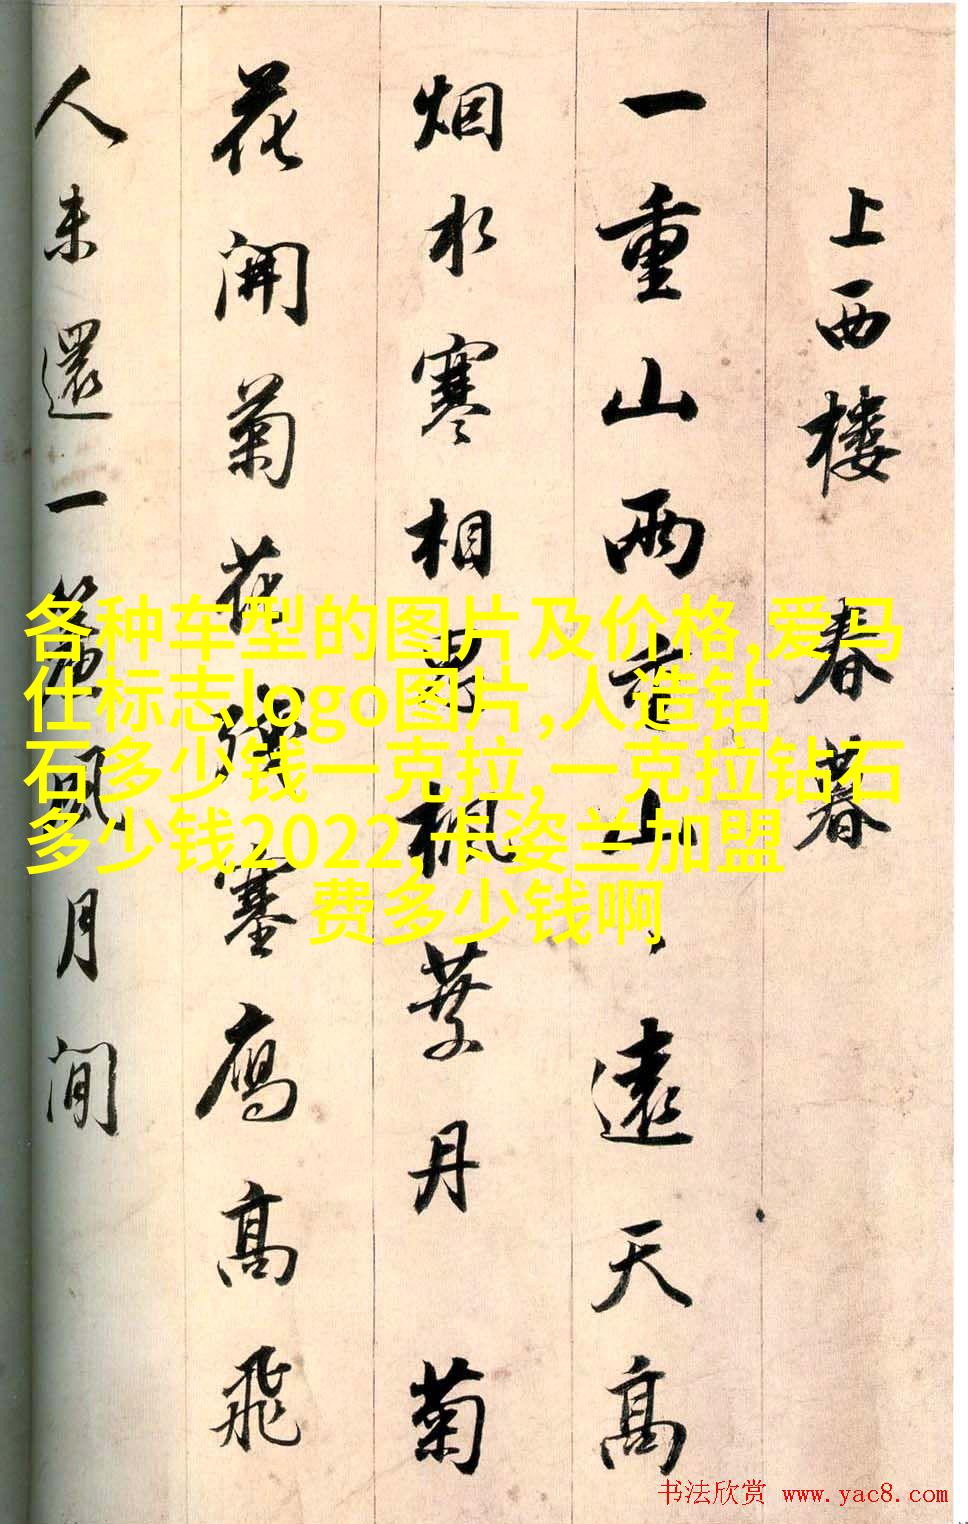 上西楼 春暮
一重山兩重山山遠天高
烟水寒相思楓葉丹 菊
花開菊花殘塞鴈高飛
人未還一簾風月閒
各种车型的图片及价格,爱马
仕标志logo图片,人造钻
石多少钱一克拉,一克拉钻石
多少钱2022,卡姿兰加盟
费多少钱啊
书法欣赏 www.yac8.com